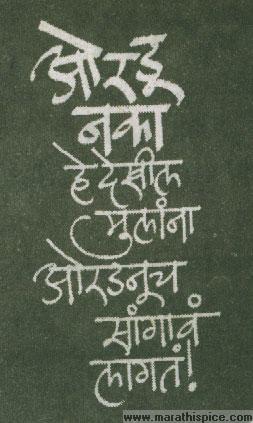 ओरडू
नका
हे देखील
मुलांना
ओरडनूच
सांगावं
लागतं!
www.marathispice.com